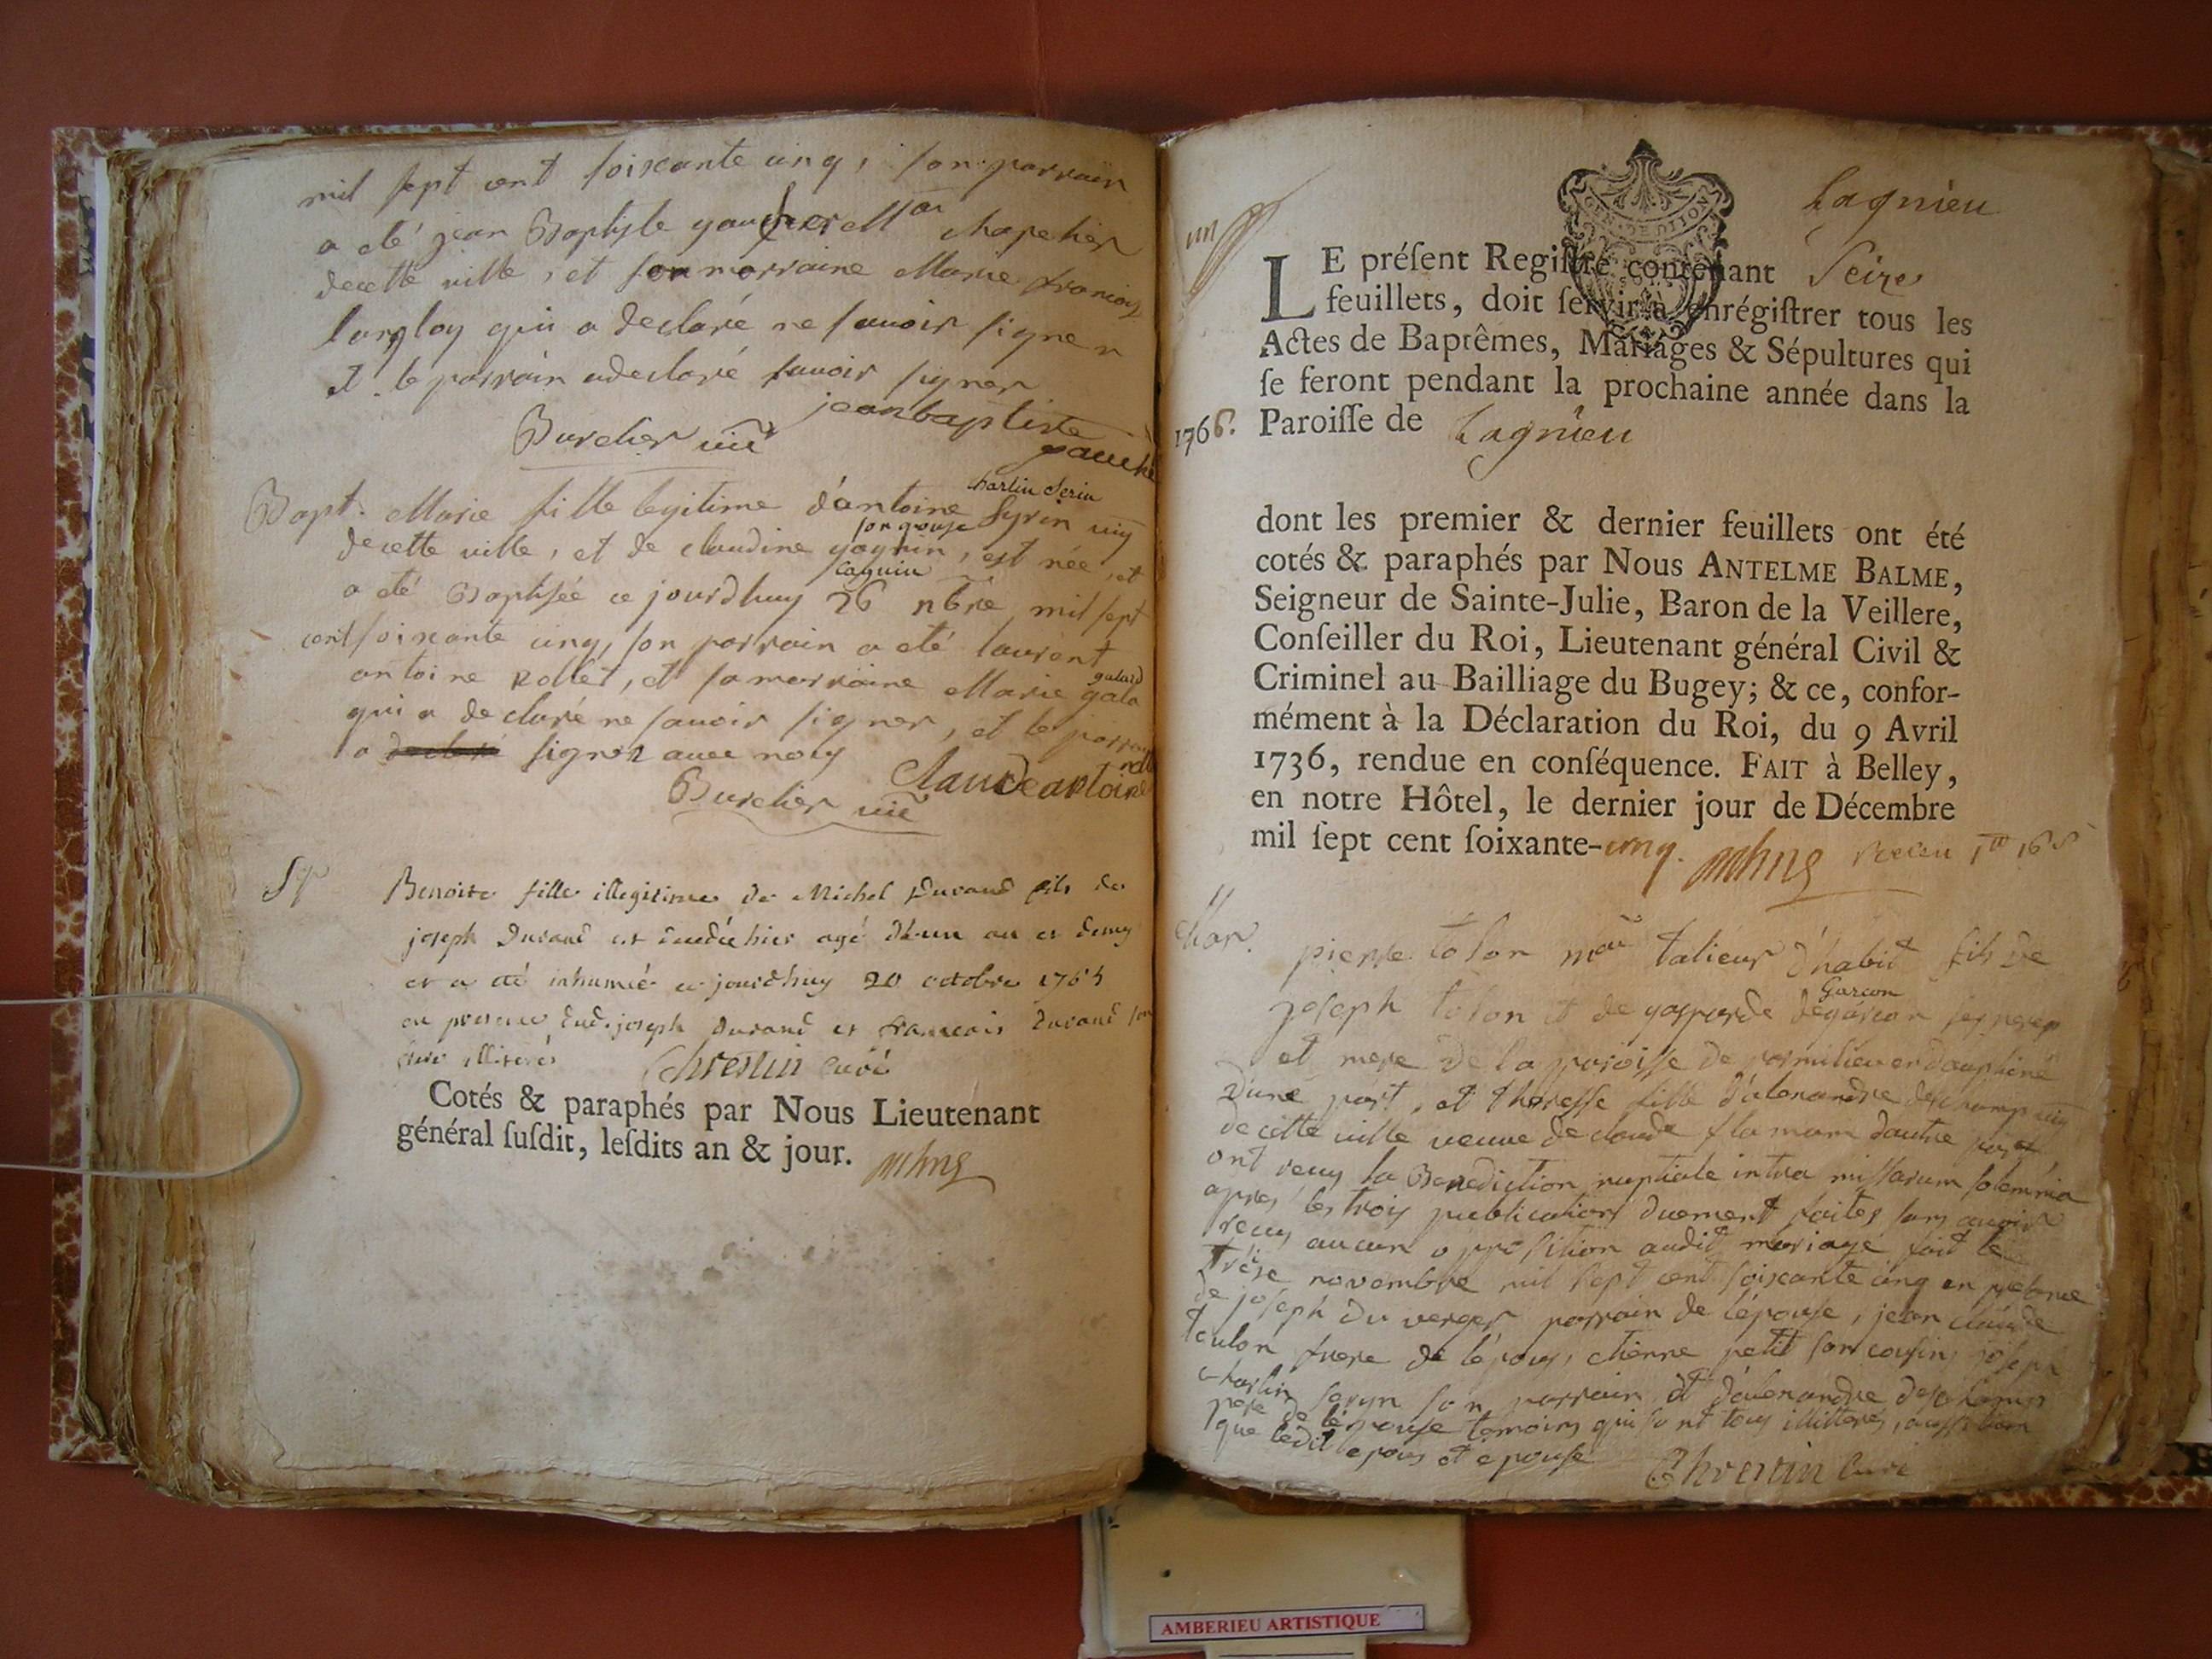 mil sept cent soiscante cinq, son parrain
a eté jean Baptiste gaucher M chapelier
decette ville, et son marraine Marie francois
langloy qui a declaré ne sauoir signer
et le parrain adeclaré sauoir signer
jeanbaptiste
gauche
Burelier vic
charlin Serin
Bapt. Marie fille legitime d'antoine Syrin vig
son epouse
decette ville, et de claudine gagnin, est née, et
caguin
a eté Baptisée ce jourdhuy 26 nbre mil sept
cent soixante cinq, son parrain a eté laurent
galard
antoine rollet, et sa marraine Marie gala
qui a declaré ne sauoir signer, et le parrain
a declaré signer avec nous
Claude antoine
Burelier vic
Sp Benoite fille illegitime de Michel Durand fils de
joseph Durand est decedée hier agé d'un an et demy
et a eté inhumée ce jourdhuy 20 octobre 1765
en presence dud. joseph Durand et francois Durand son
frere illiterés Chrestin curé
Cotés & paraphés par Nous Lieutenant
général ſuſdit, leſdits an & jour.
Lagnieu
LE préſent Regiſtre contenant Seize
feuillets, doit ſervir à enrégiſtrer tous les
Actes de Baptêmes, Mariages & Sépultures qui
ſe feront pendant la prochaine année dans la
1766. Paroiſſe de Lagnieu
dont les premier & dernier feuillets ont été
cotés & paraphés par Nous ANTELME BALME,
Seigneur de Sainte-Julie, Baron de la Veillere,
Conſeiller du Roi, Lieutenant général Civil &
Criminel au Bailliage du Bugey; & ce, confor-
mément à la Déclaration du Roi, du 9 Avril
1736, rendue en conſéquence. FAIT à Belley,
en notre Hôtel, le dernier jour de Décembre
mil ſept cent ſoixante-cinq.
Mar. pierre tolon talieur d'habit fils de
Garcon
joseph tolon et de gasparde degarcon ses perep
et mere de la paroisse de parmilieu en dauphiné
d'une part, et theresse fille d'alexandre deschamp vig
de cette ville veuve de claude flamam d'autre part
ont reçu la Benediction nuptiale intra missarum solemnia
apres les trois publications duement faites sans avoir
recus aucun opposition audit mariage fait le
trése novembre mil sept cent soiscante cinq en presence
de joseph du verger parrain de l'épouse, jean claude
toulon frere de lépous, etienne petit son cousin, joseph
charlin seryn son parrain et d'alexandre deschamps
pere de lépouse temoins qui sont tous illitterés, aussi bien
que ledit epous et epouse Chrestin curé
AMBERIEU ARTISTIQUE